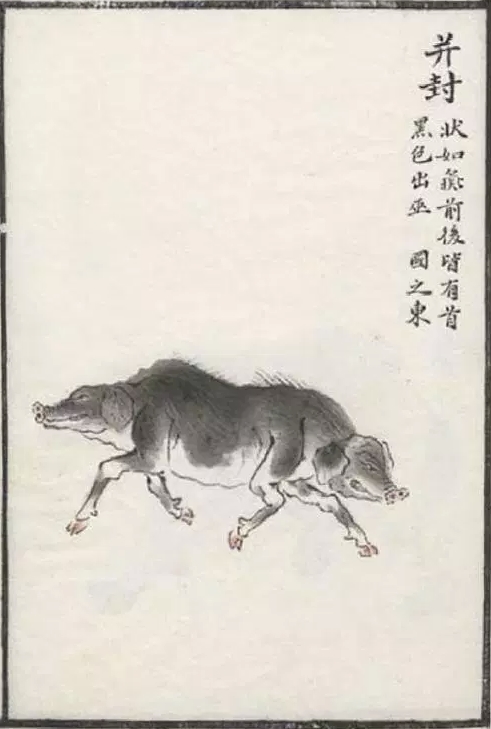 并封
狀如彘前後皆有首
黑色出巫　國之東